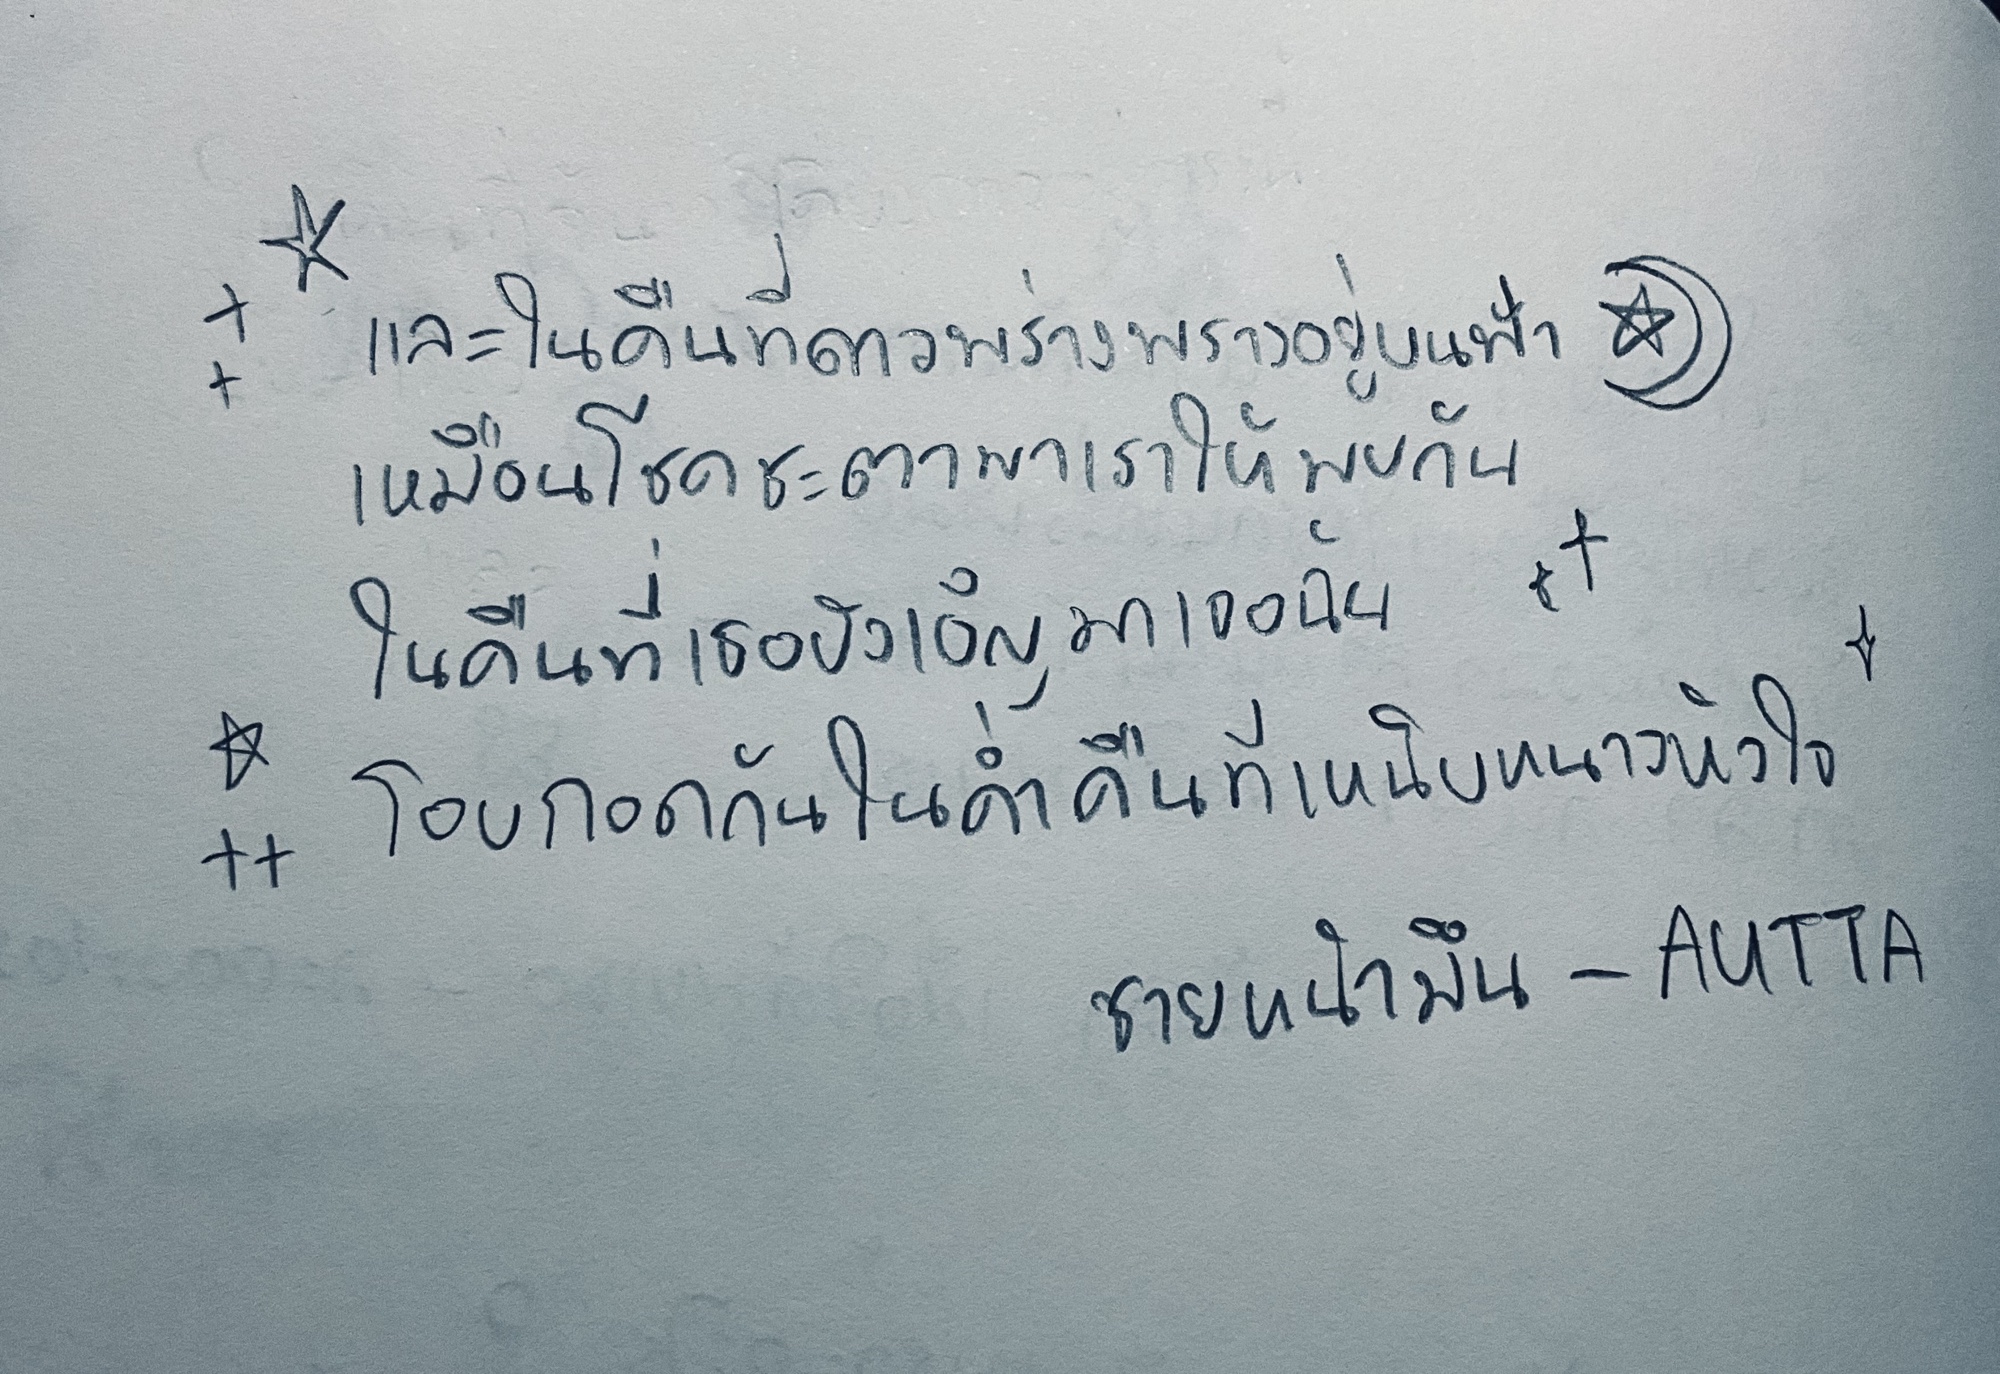 และในคืนที่ดาวพร่างพราวอยู่บนฟ้า
เหมือนโชคชะตาพาเราให้พบกัน
ในคืนที่เธอบังเอิญมาเจอฉัน
โอบกอดกันในค่ำคืนที่เหน็บหนาวหัวใจ
ชายหน้ามึน - AUTTA